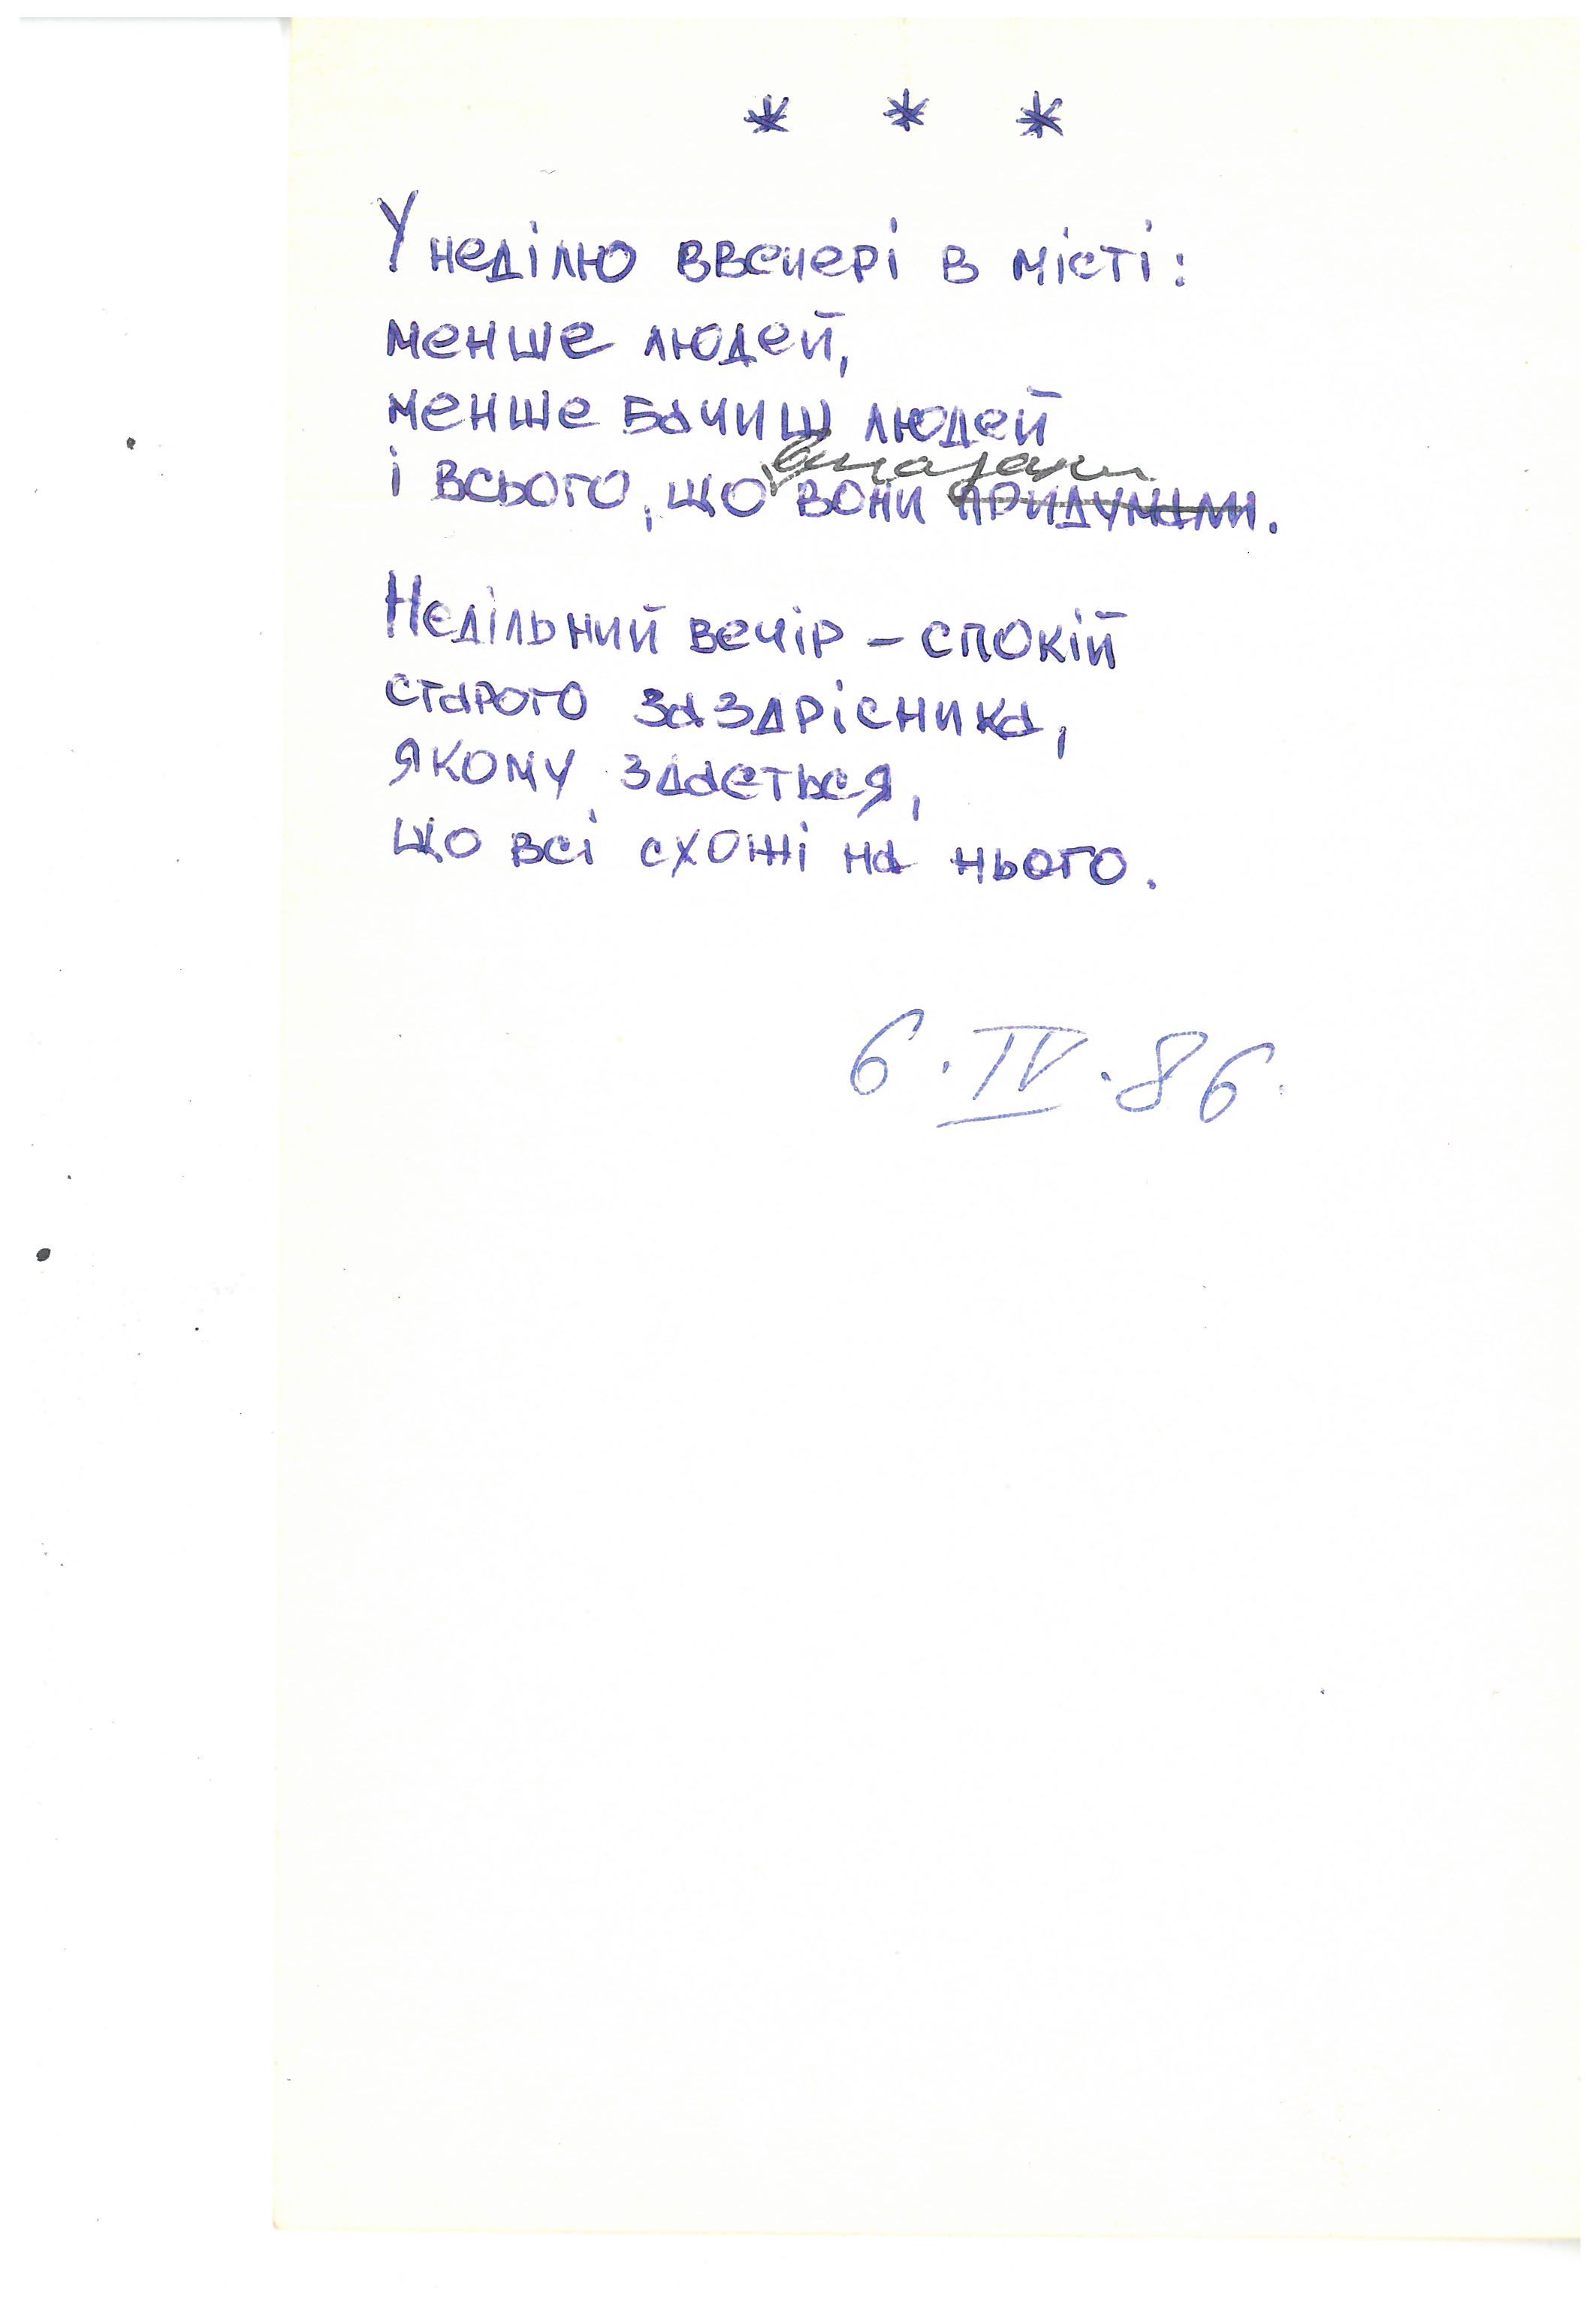 * * *
У неділю ввечері в місті:
менше людей,
менше бачиш людей
і всього, що вони придумали.
Недільний вечір – спокій
старого заздрісника,
якому здається,
що всі схожі на нього.
6.IV.86.